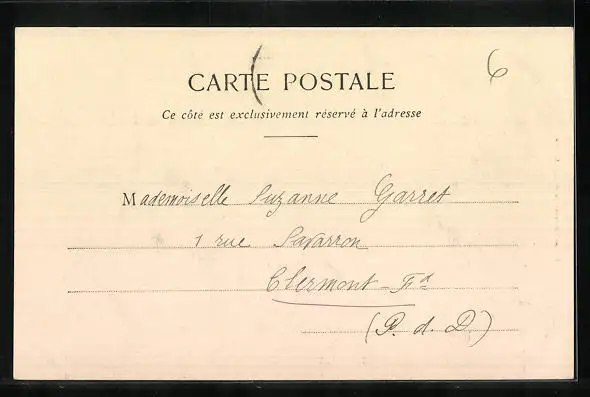 6
CARTE POSTALE
Ce côté est exclusivement réservé à l'adresse
Mademoiselle Suzanne Garret
1 rue Savaron
Clermont-Fd
(P. d. D.)